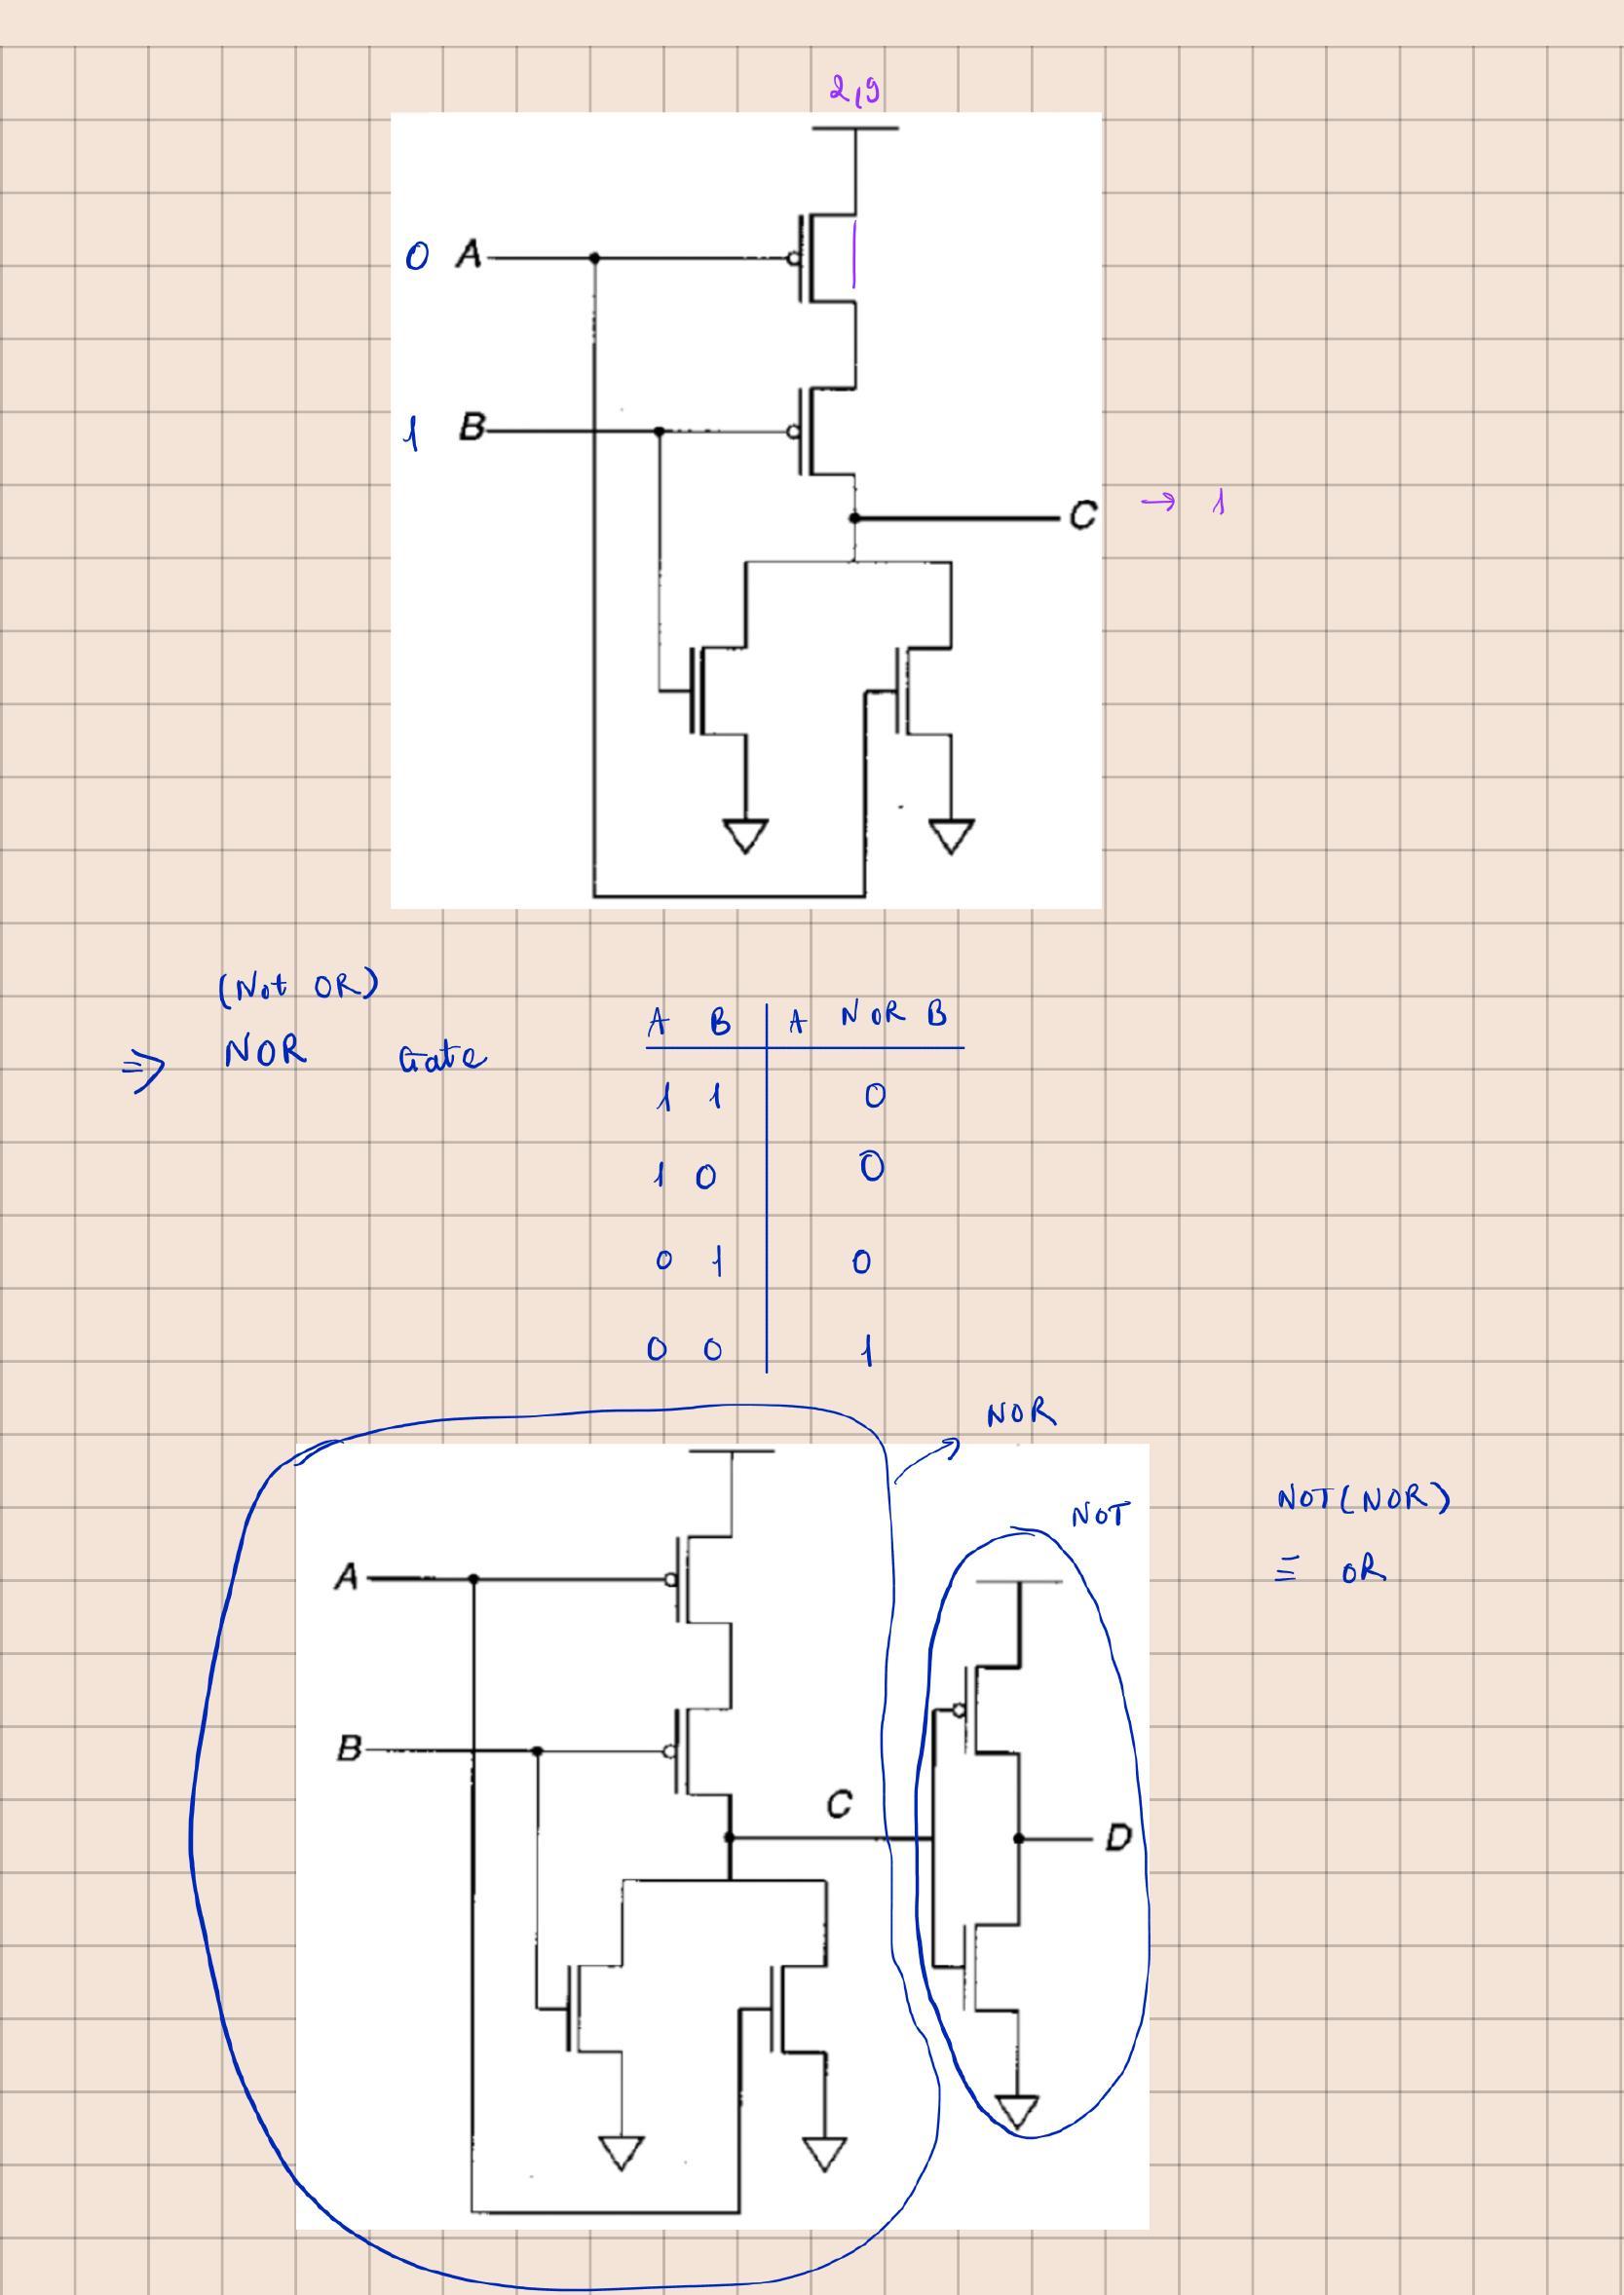 2,9
0 A
1 B
C → 1
(Not OR)
⇒ NOR Gate
A B A NOR B
1 1 0
1 0 0
0 1 0
0 0 1
NOR
NOT
NOT(NOR)
≡ OR
A
B
C
D